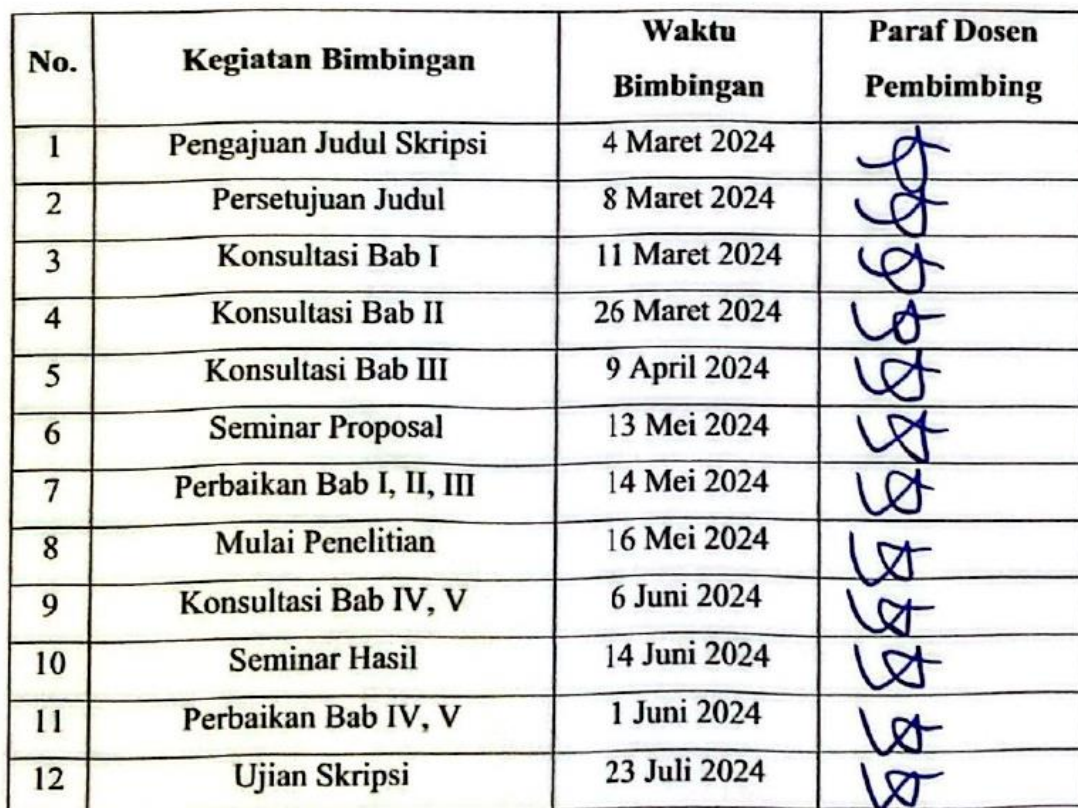 No. Kegiatan Bimbingan Waktu Bimbingan Paraf Dosen Pembimbing
1 Pengajuan Judul Skripsi 4 Maret 2024
2 Persetujuan Judul 8 Maret 2024
3 Konsultasi Bab I 11 Maret 2024
4 Konsultasi Bab II 26 Maret 2024
5 Konsultasi Bab III 9 April 2024
6 Seminar Proposal 13 Mei 2024
7 Perbaikan Bab I, II, III 14 Mei 2024
8 Mulai Penelitian 16 Mei 2024
9 Konsultasi Bab IV, V 6 Juni 2024
10 Seminar Hasil 14 Juni 2024
11 Perbaikan Bab IV, V 1 Juni 2024
12 Ujian Skripsi 23 Juli 2024